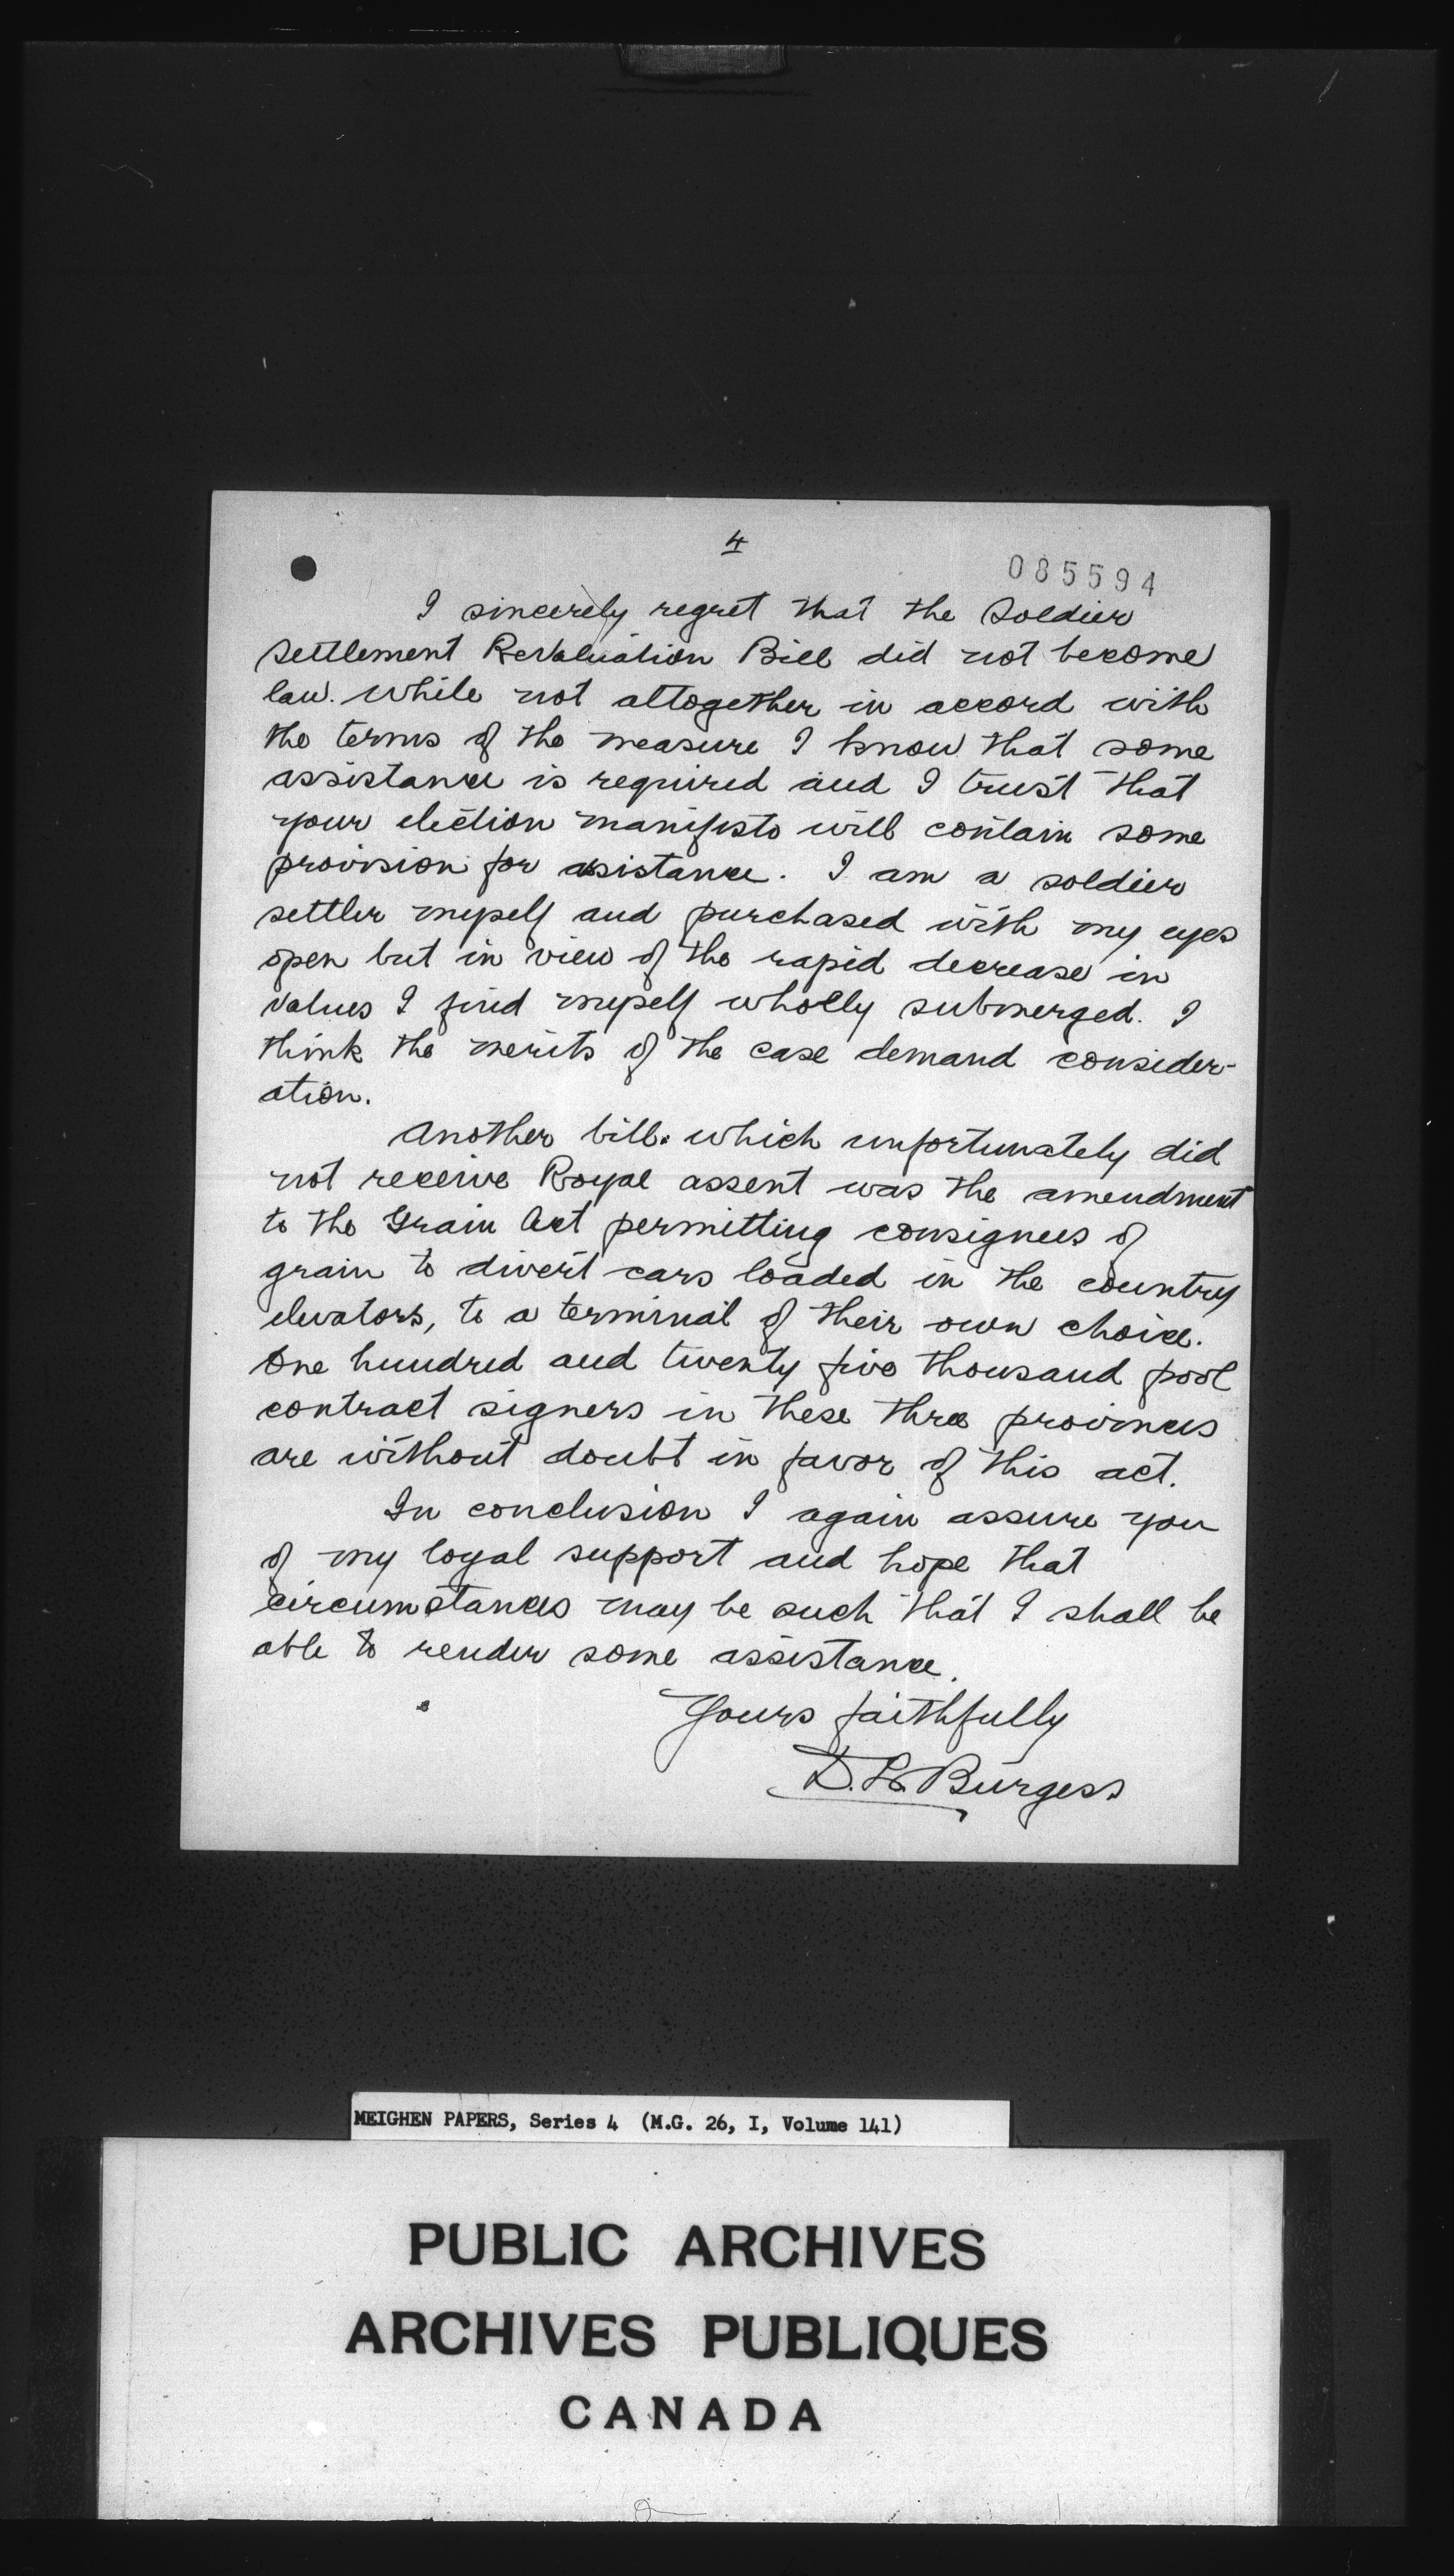 4
085594
I sincerely regret that the Soldier
Settlement Revaluation Bill did not become
law. While not altogether in accord with
the terms of the measure I know that some
assistance is required and I trust that
your election manifesto will contain some
provision for assistance. I am a soldier
settler myself and purchased with my eyes
open but in view of the rapid decrease in
values I find myself wholly submerged. I
think the merits of the case demand consider-
ation.
Another bill which unfortunately did
not receive Royal assent was the amendment
to the Grain Act permitting consignees of
grain to divert cars loaded in the country
elevators, to a terminal of their own choice.
One hundred and twenty five thousand pool
contract signers in these three provinces
are without doubt in favor of this act.
In conclusion I again assure you
of my loyal support and hope that
circumstances may be such that I shall be
able to render some assistance.
Yours faithfully
D. L. Burgess
MEIGHEN PAPERS, Series 4 (M.G. 26, I, Volume 141)
PUBLIC ARCHIVES
ARCHIVES PUBLIQUES
CANADA